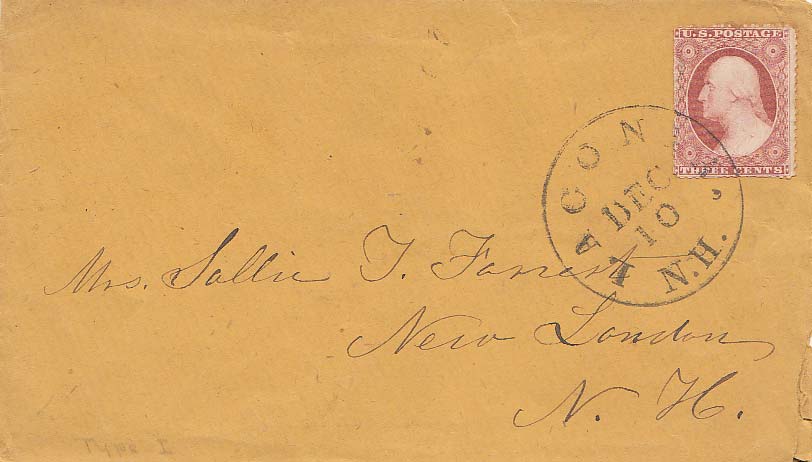 U.S. POSTAGE
THREE CENTS
LACONIA, N.H.
DEC
10
Mrs. Sallie T. Forrest
New London
N. H.
Type I